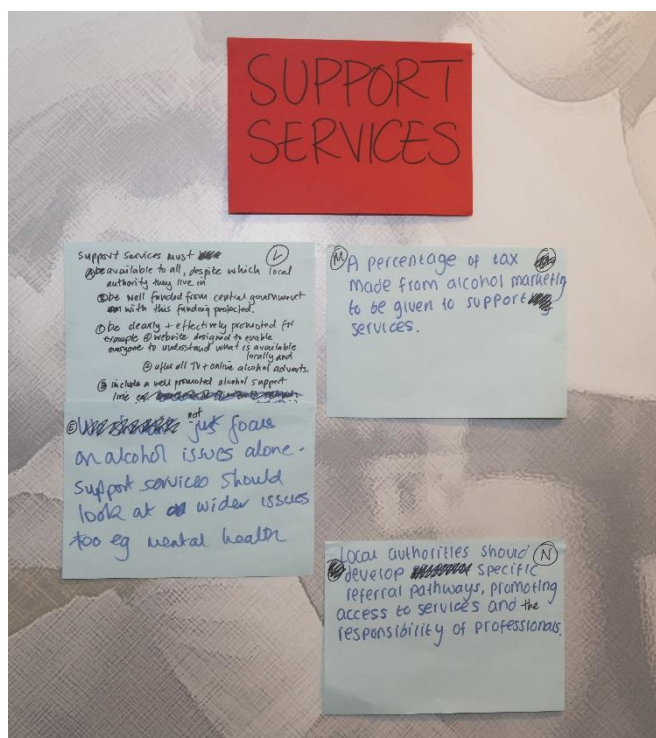 SUPPORT
SERVICES
Support Services must
L
Ⓐ be available to all, despite which local
authority they live in
Ⓑ be well funded from central government
with this funding protected.
Ⓒ be clearly + effectively promoted for
example ① website designed to enable
everyone to understand what is available
locally and
② after all TV + online alcohol adverts.
Ⓓ include a well promoted alcohol support
line
Ⓔ not just focus
on alcohol issues alone -
support services should
look at wider issues
too eg mental health
M
A percentage of tax
made from alcohol marketing
to be given to support
services.
Local authorities should
N
develop specific
referral pathways, promoting
access to services and the
responsibility of professionals.